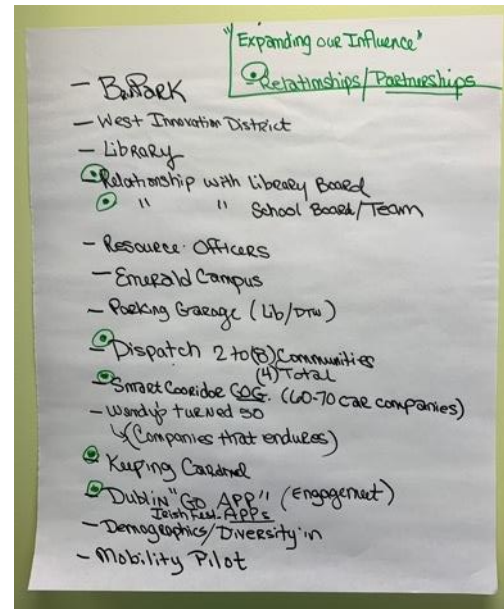 "Expanding our Influence"
Relationships/Partnerships
- B. Park
- West Innovation District
- Library
- Relationship with Library Board
" " School Board/Team
- Resource Officers
- Emerald Campus
- Parking Garage (Lib/DTW)
- Dispatch 2 to (8) Communities
(4) Total
- Smart Cooridor COG. (60-70 car companies)
- Wendy's turned 50
(Companies that endures)
Keeping Cardinal
- Dublin "GO APP" (Engagement)
Irish Fest. APPs
- Demographics/Diversity in
- Mobility Pilot